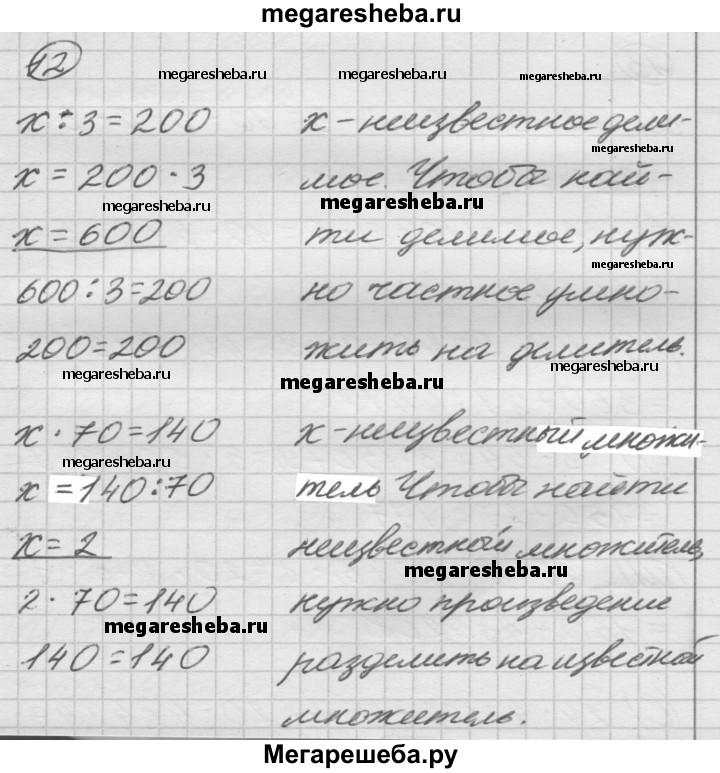 megaresheba.ru
12
megaresheba.ru megaresheba.ru megaresheba.ru
x÷3=200 x-неизвестное дели-
megaresheba.ru
x=200·3 мое. Чтобы най-
megaresheba.ru megaresheba.ru
x=600 ти делимое, нуж-
megaresheba.ru
600÷3=200 но частное умно-
200=200 жить на делитель.
megaresheba.ru megaresheba.ru
x·70=140 x-неизвестный множи-
megaresheba.ru
x=140:70 тель Чтобы найти
x=2 неизвестной множитель,
megaresheba.ru
2·70=140 нужно произведение
megaresheba.ru
140=140 разделить на известной
множитель.
Мегарешеба.ру